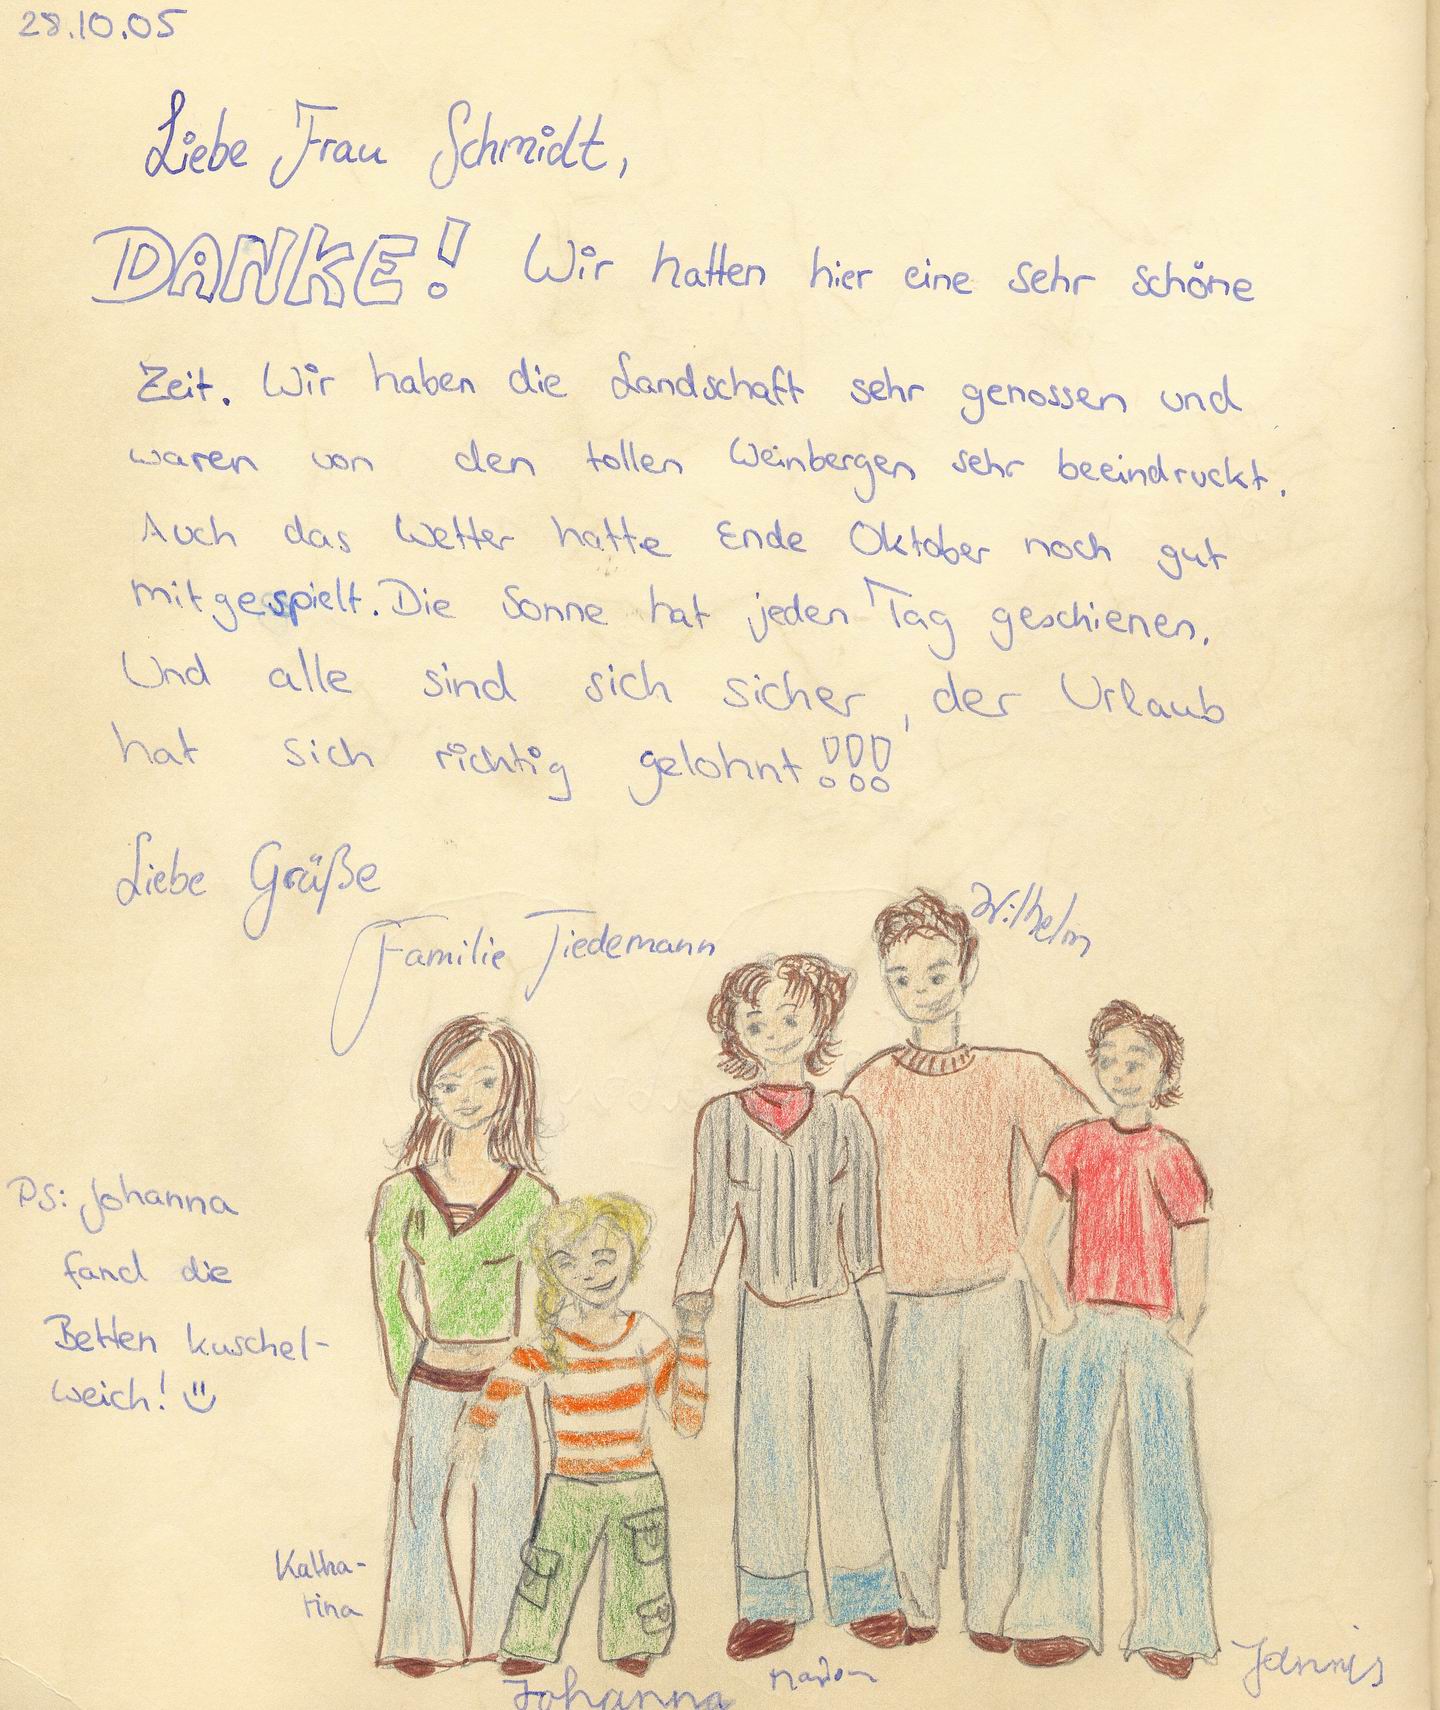 28.10.05
Liebe Frau Schmidt,
DANKE! Wir hatten hier eine sehr schöne
Zeit. Wir haben die Landschaft sehr genossen und
waren von den tollen Weinbergen sehr beeindruckt.
Auch das Wetter hatte Ende Oktober noch gut
mitgespielt. Die Sonne hat jeden Tag geschienen.
Und alle sind sich sicher, der Urlaub
hat sich richtig gelohnt!!!
Liebe Grüße
Familie Tiedemann
Wilhelm
PS: Johanna
fand die
Betten kuschel-
weich! ü
Katha-
rina
Johanna
Marion
Jannis